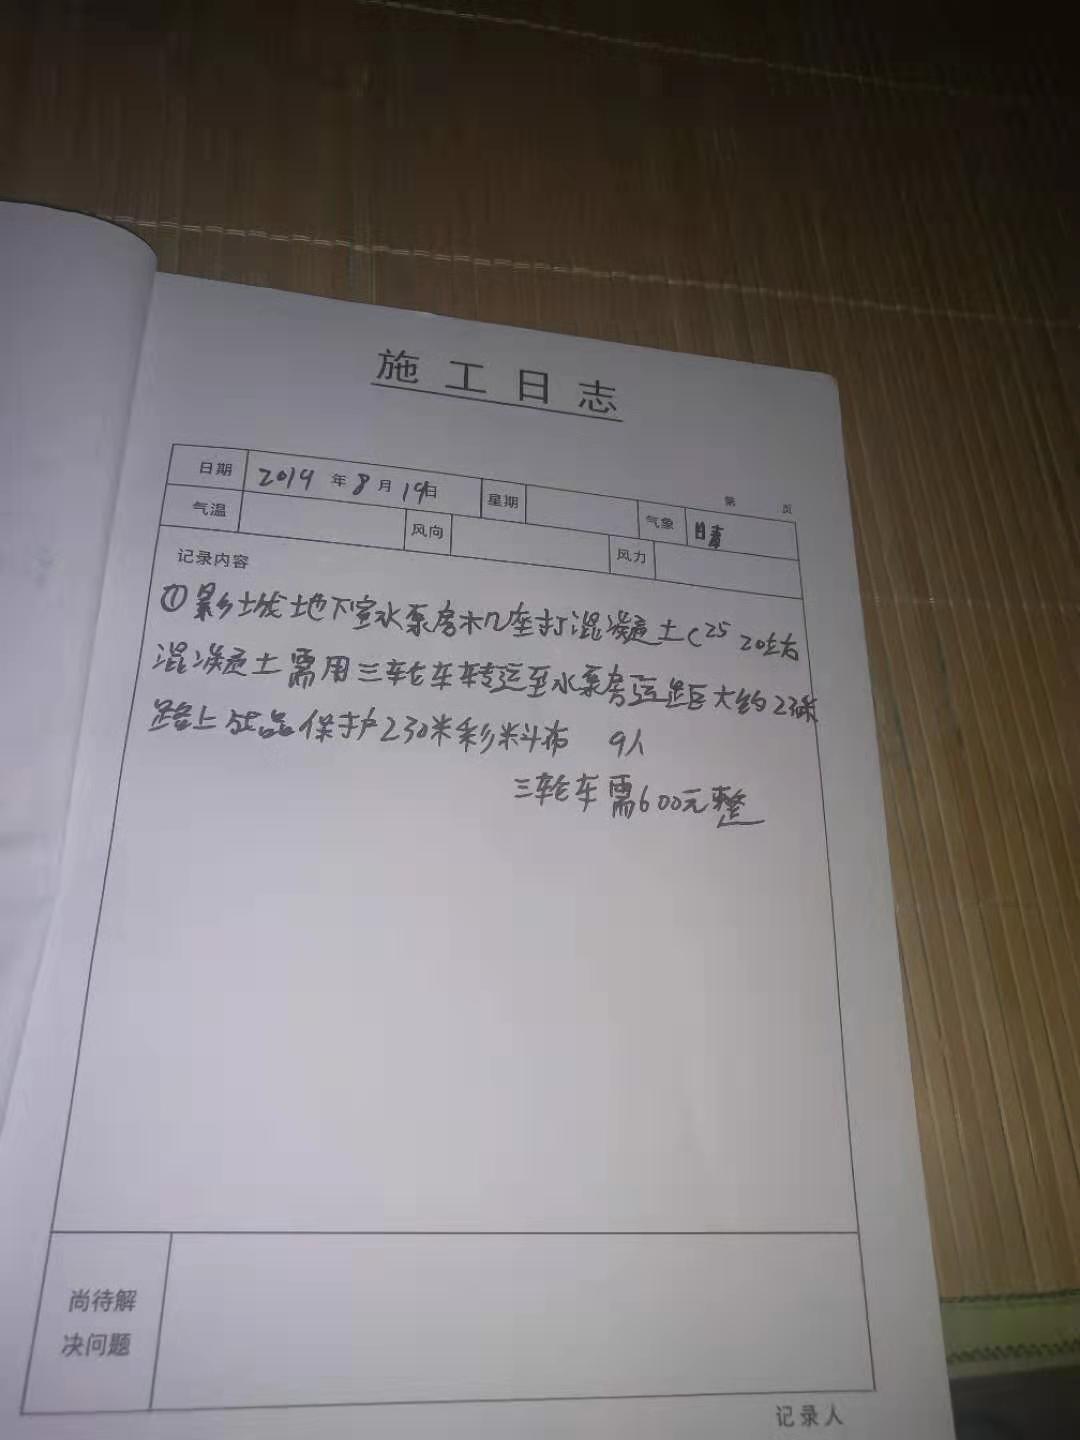 施工日志
第 页
日期 2019年8月19日 星期 气象 晴
气温 风向 风力
记录内容
①影城地下室水泵房机座打混凝土C25 20左右
混凝土需用三轮车转运至水泵房运距大约230米
路上成品保护230米彩料布 9人
三轮车需600元整
尚待解
决问题
记录人